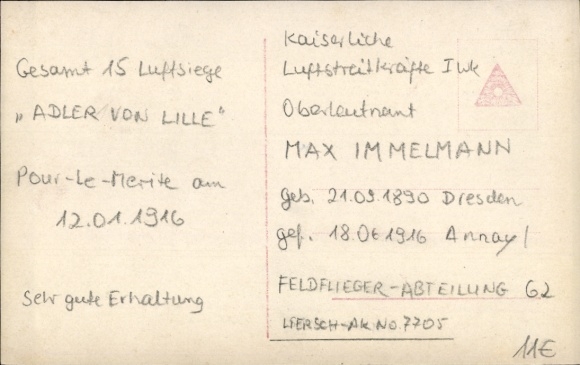 Gesamt 15 Luftsiege
„ADLER VON LILLE"
Pour-Le-Merite am
12.01.1916
Sehr gute Erhaltung
Kaiserliche
Luftstreitkräfte I Wk
Oberleutnant
MAX IMMELMANN
geb. 21.09.1890 Dresden
gef. 18.06.1916 Annay/
FELDFLIEGER-ABTEILUNG 62
-AK NO. 7705
11€